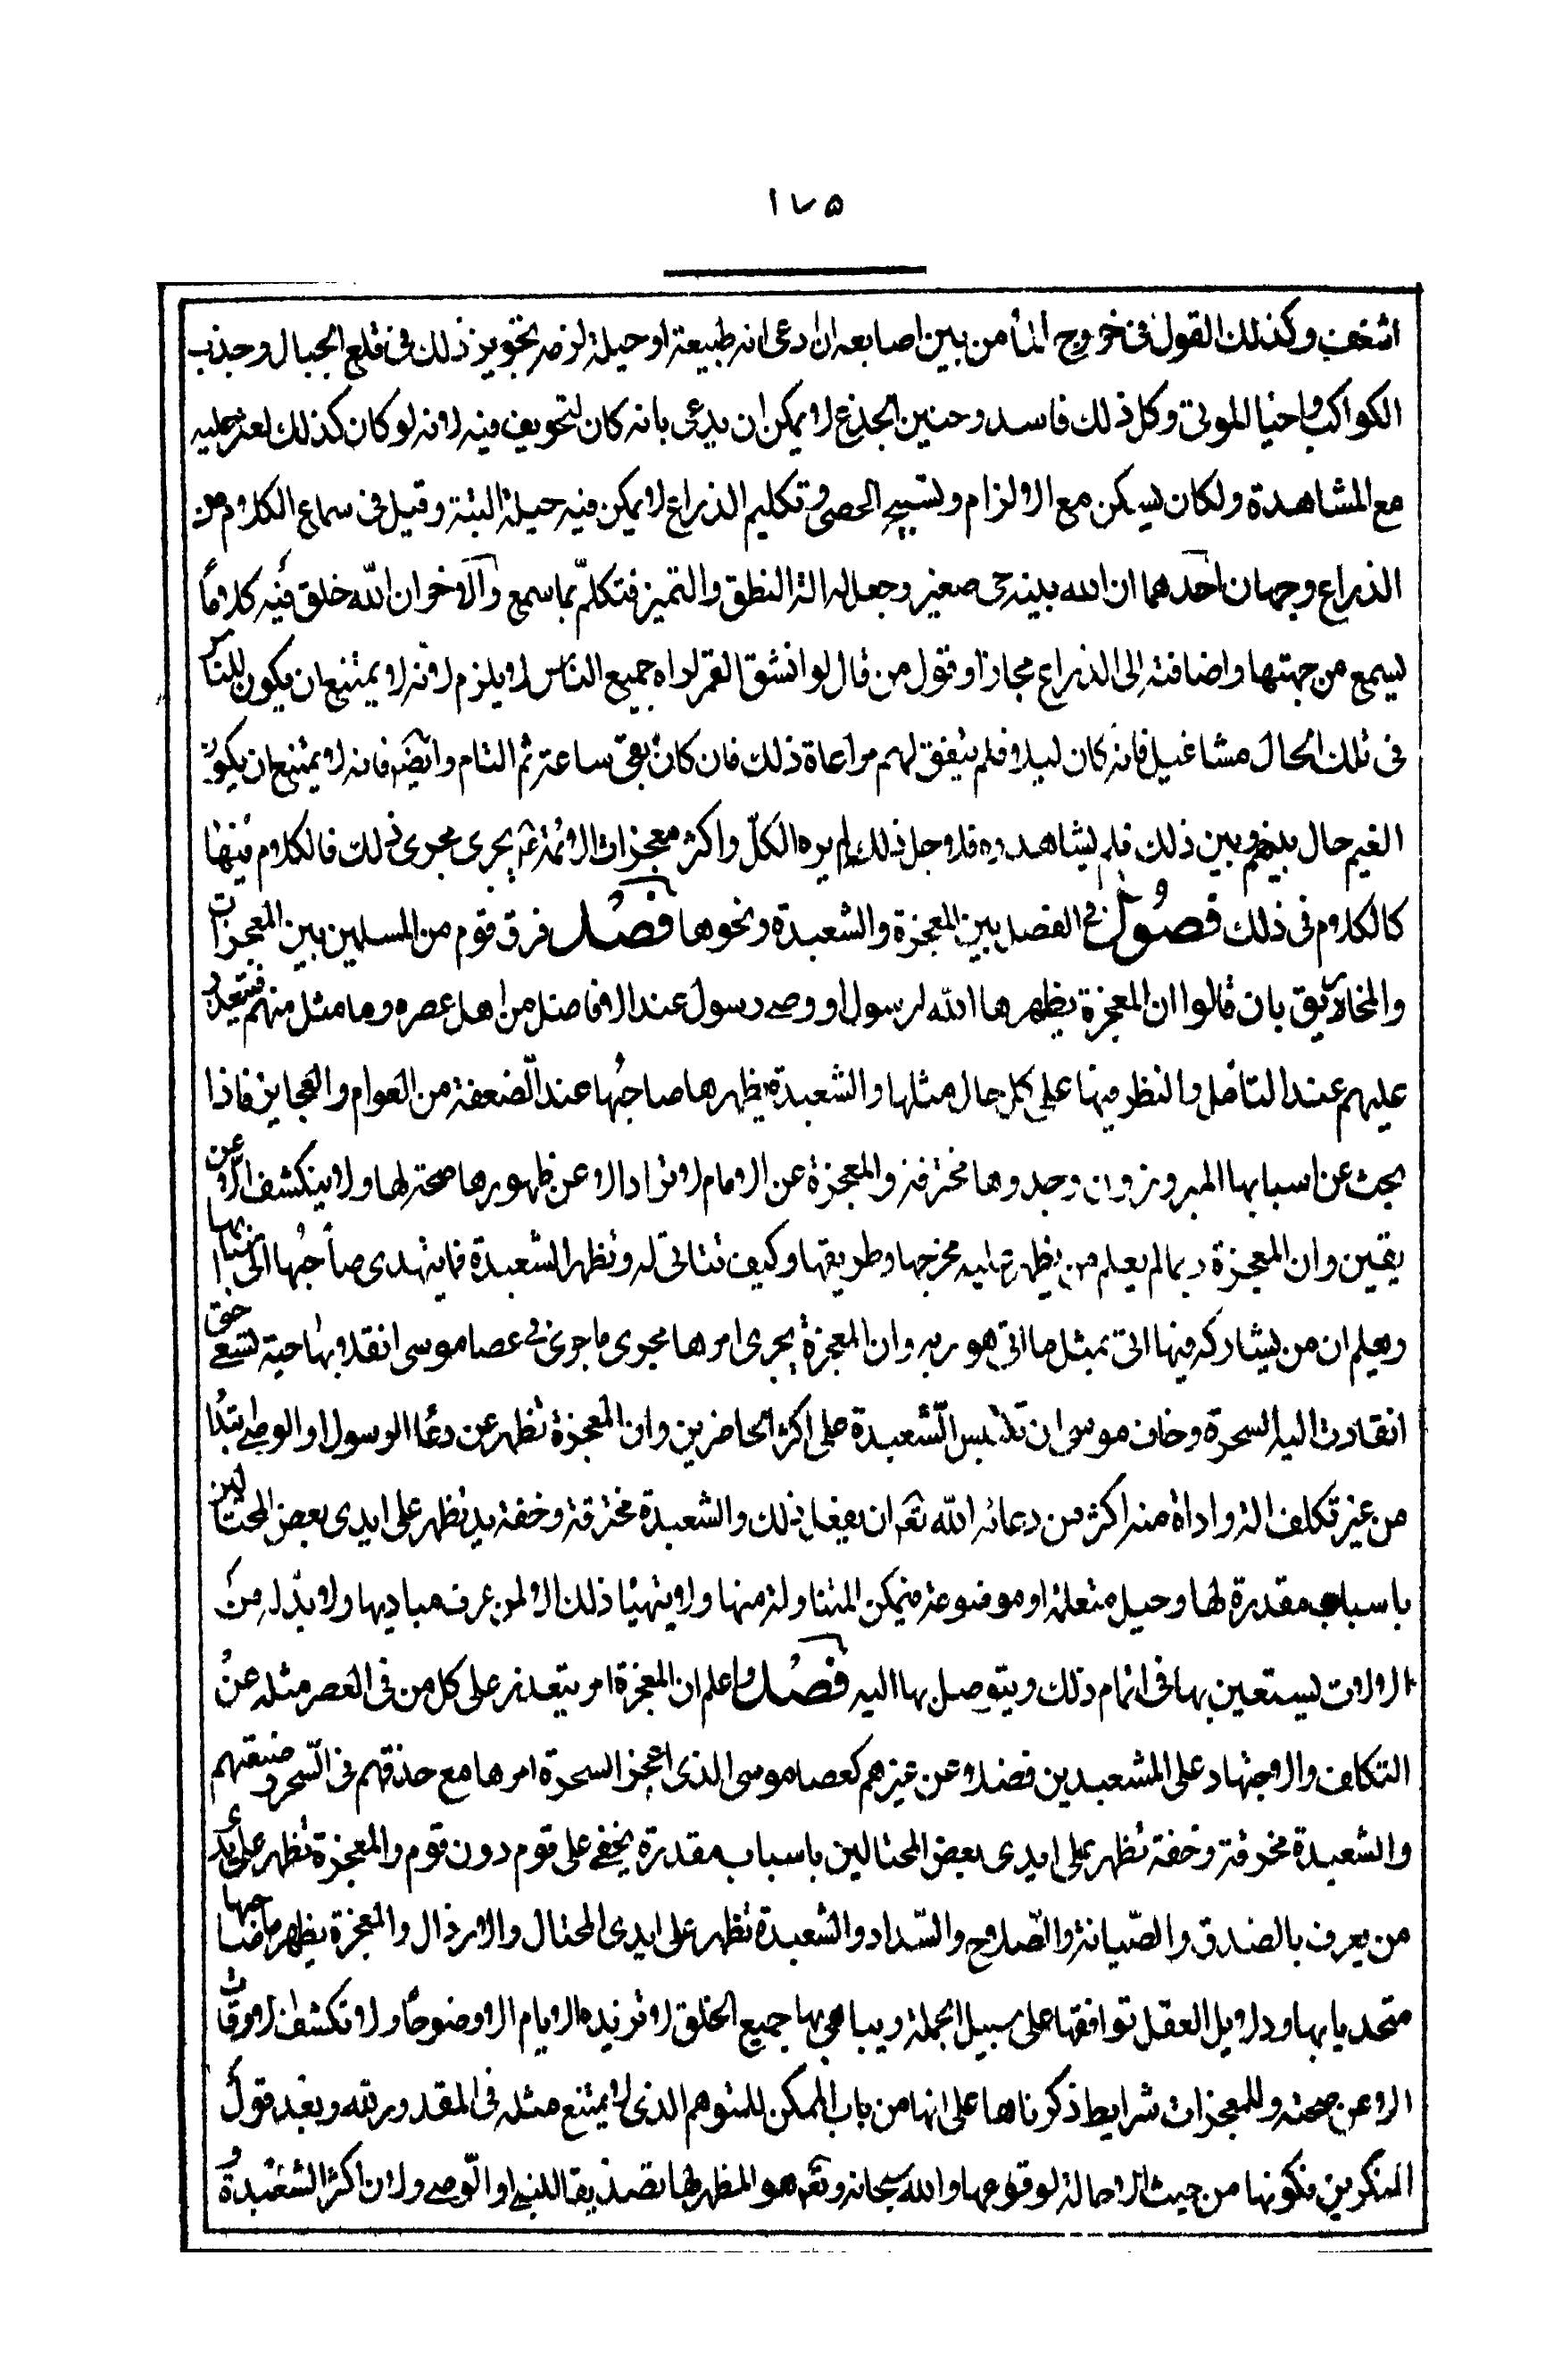 ١٧٥
اشغف وكذلك القول فى خروج المأ من بين اصابعه ان ادعى انه طبيعة او حيلة لزمه تجويز ذلك فى قلع الجبال وجذب
الكواكب واحيا الموتى وكل ذلك فاسد وحنين الجذع لا يمكن ان يدعى بانه كان لتجويف فيه لانه لو كان كذلك لعثر عليه
مع المشاهدة ولكان يسكن مع الالزام وتسبيح الحصى وتكليم الذراع لا يمكن فيه حيلة البتة وقيل فى سماع الكلام من
الذراع وجهان احدهما ان الله بينه حى صغير وجعل له الة النطق والتميز فتكلم بما سمع والاخر ان الله خلق فيه كلاماً
يسمع من جهتها واضافته الى الذراع مجازا وقول من قال لو انشق القمر لراه جميع الناس لا يلزم لانه لا يمتنع ان يكون للناس
فى تلك الحال مشاغيل فانه كان ليلا فلم يتفق لهم مراعاة ذلك فان كان بقى ساعة ثم التام وايضً فانه لا يمتنع ان يكون
الغيم حال بينهم وبين ذلك فلم يشاهدوه فلاجل ذلك لم يره الكلّ واكثر معجزات الائمة عم يجرى مجرى ذلك فالكلام فيها
كالكلام فى ذلك فصول فى الفصل بين المعجزة والشعبدة ونحوها فصل فرق قوم من المسلمين بين المعجزات
والمخاريق بان قالوا ان المعجزة يظهرها الله لرسول او وصى رسول عند الافاضل من اهل عصره وما مثل منهم فيتعذر
عليهم عند التامل والنظر فيها على كل حال مثلها والشعبدة يظهرها صاحبها عند الضعفة من العوام والعجايز فاذا
بحث عن اسبابها المبرزون وجدوها مخترقة والمعجزة عن الامام لا تزداد الا عن ظهورها صحة لها ولا ينكشف الا عن
يقين وان المعجزة ربما لم يعلم من يظهر عليه مخرجها وطريقها وكيف تتاتى له وتظهر الشعبدة مما يهتدى صاحبها الى اسبابها
ويعلم ان من يشاركه فيها اتى بمثل ما اتى هو به وان المعجزة يجرى امرها مجرى ما جرى فى عصا موسى انقلابها حية تسعى حتى
انقادت اليه السحرة وخاف موسى ان تلتبس الشعبدة على اكثر الحاضرين وان المعجزة تظهر عن دعا الرسول او الوصى ابتدا
من غير تكلف الة واداة منه اكثر من دعائه الله تعَ ان يفعل ذلك والشعبدة مخترقة وخفة يد تظهر على ايدى بعض المحتالين
باسباب مقدرة لها وحيل متعلمة او موضوعة فيمكن المتناولة منها ولا يتهيئا ذلك الا لمن عرف مباديها ولا بد له من
الالات يستعين بها فى اتمام ذلك ويتوصل بها اليه فصل واعلم ان المعجزة امر يتعذر على كل من فى العصر مثله عن
التكلف والاجتهاد على المشعبدين فضلا عن غيرهم كعصا موسى الذى اعجز السحرة امرها مع حذقهم فى السحر وصنعتهم
والشعبدة مخرقة وخفة تظهر على ايدى بعض المحتالين باسباب مقدرة يخفى على قوم دون قوم والمعجزة تظهر على ايدى
من يعرف بالصدق والصيانة والصلاح والسداد والشعبدة تظهر على ايدى المحتال والارذال والمعجزة يظهرها صاحبها
متحديا بها ودلايل العقل توافقها على سبيل الجملة ويباهى بها جميع الخلق لا تزيده الايام الا وضوحاً ولا تكشف الاوقات
الا عن صحته وللمعجزات شرايط ذكرناها على انها من باب الممكن للتوهم الذى لا يمتنع مثله فى المقدور لله وبعد قول
المنكرين فكونها من حيث الاحالة لوقوعها والله سبحانه وتعَ هو المظهر لها تصديقا للنبى او الوصى ولان اكثر الشعبدة